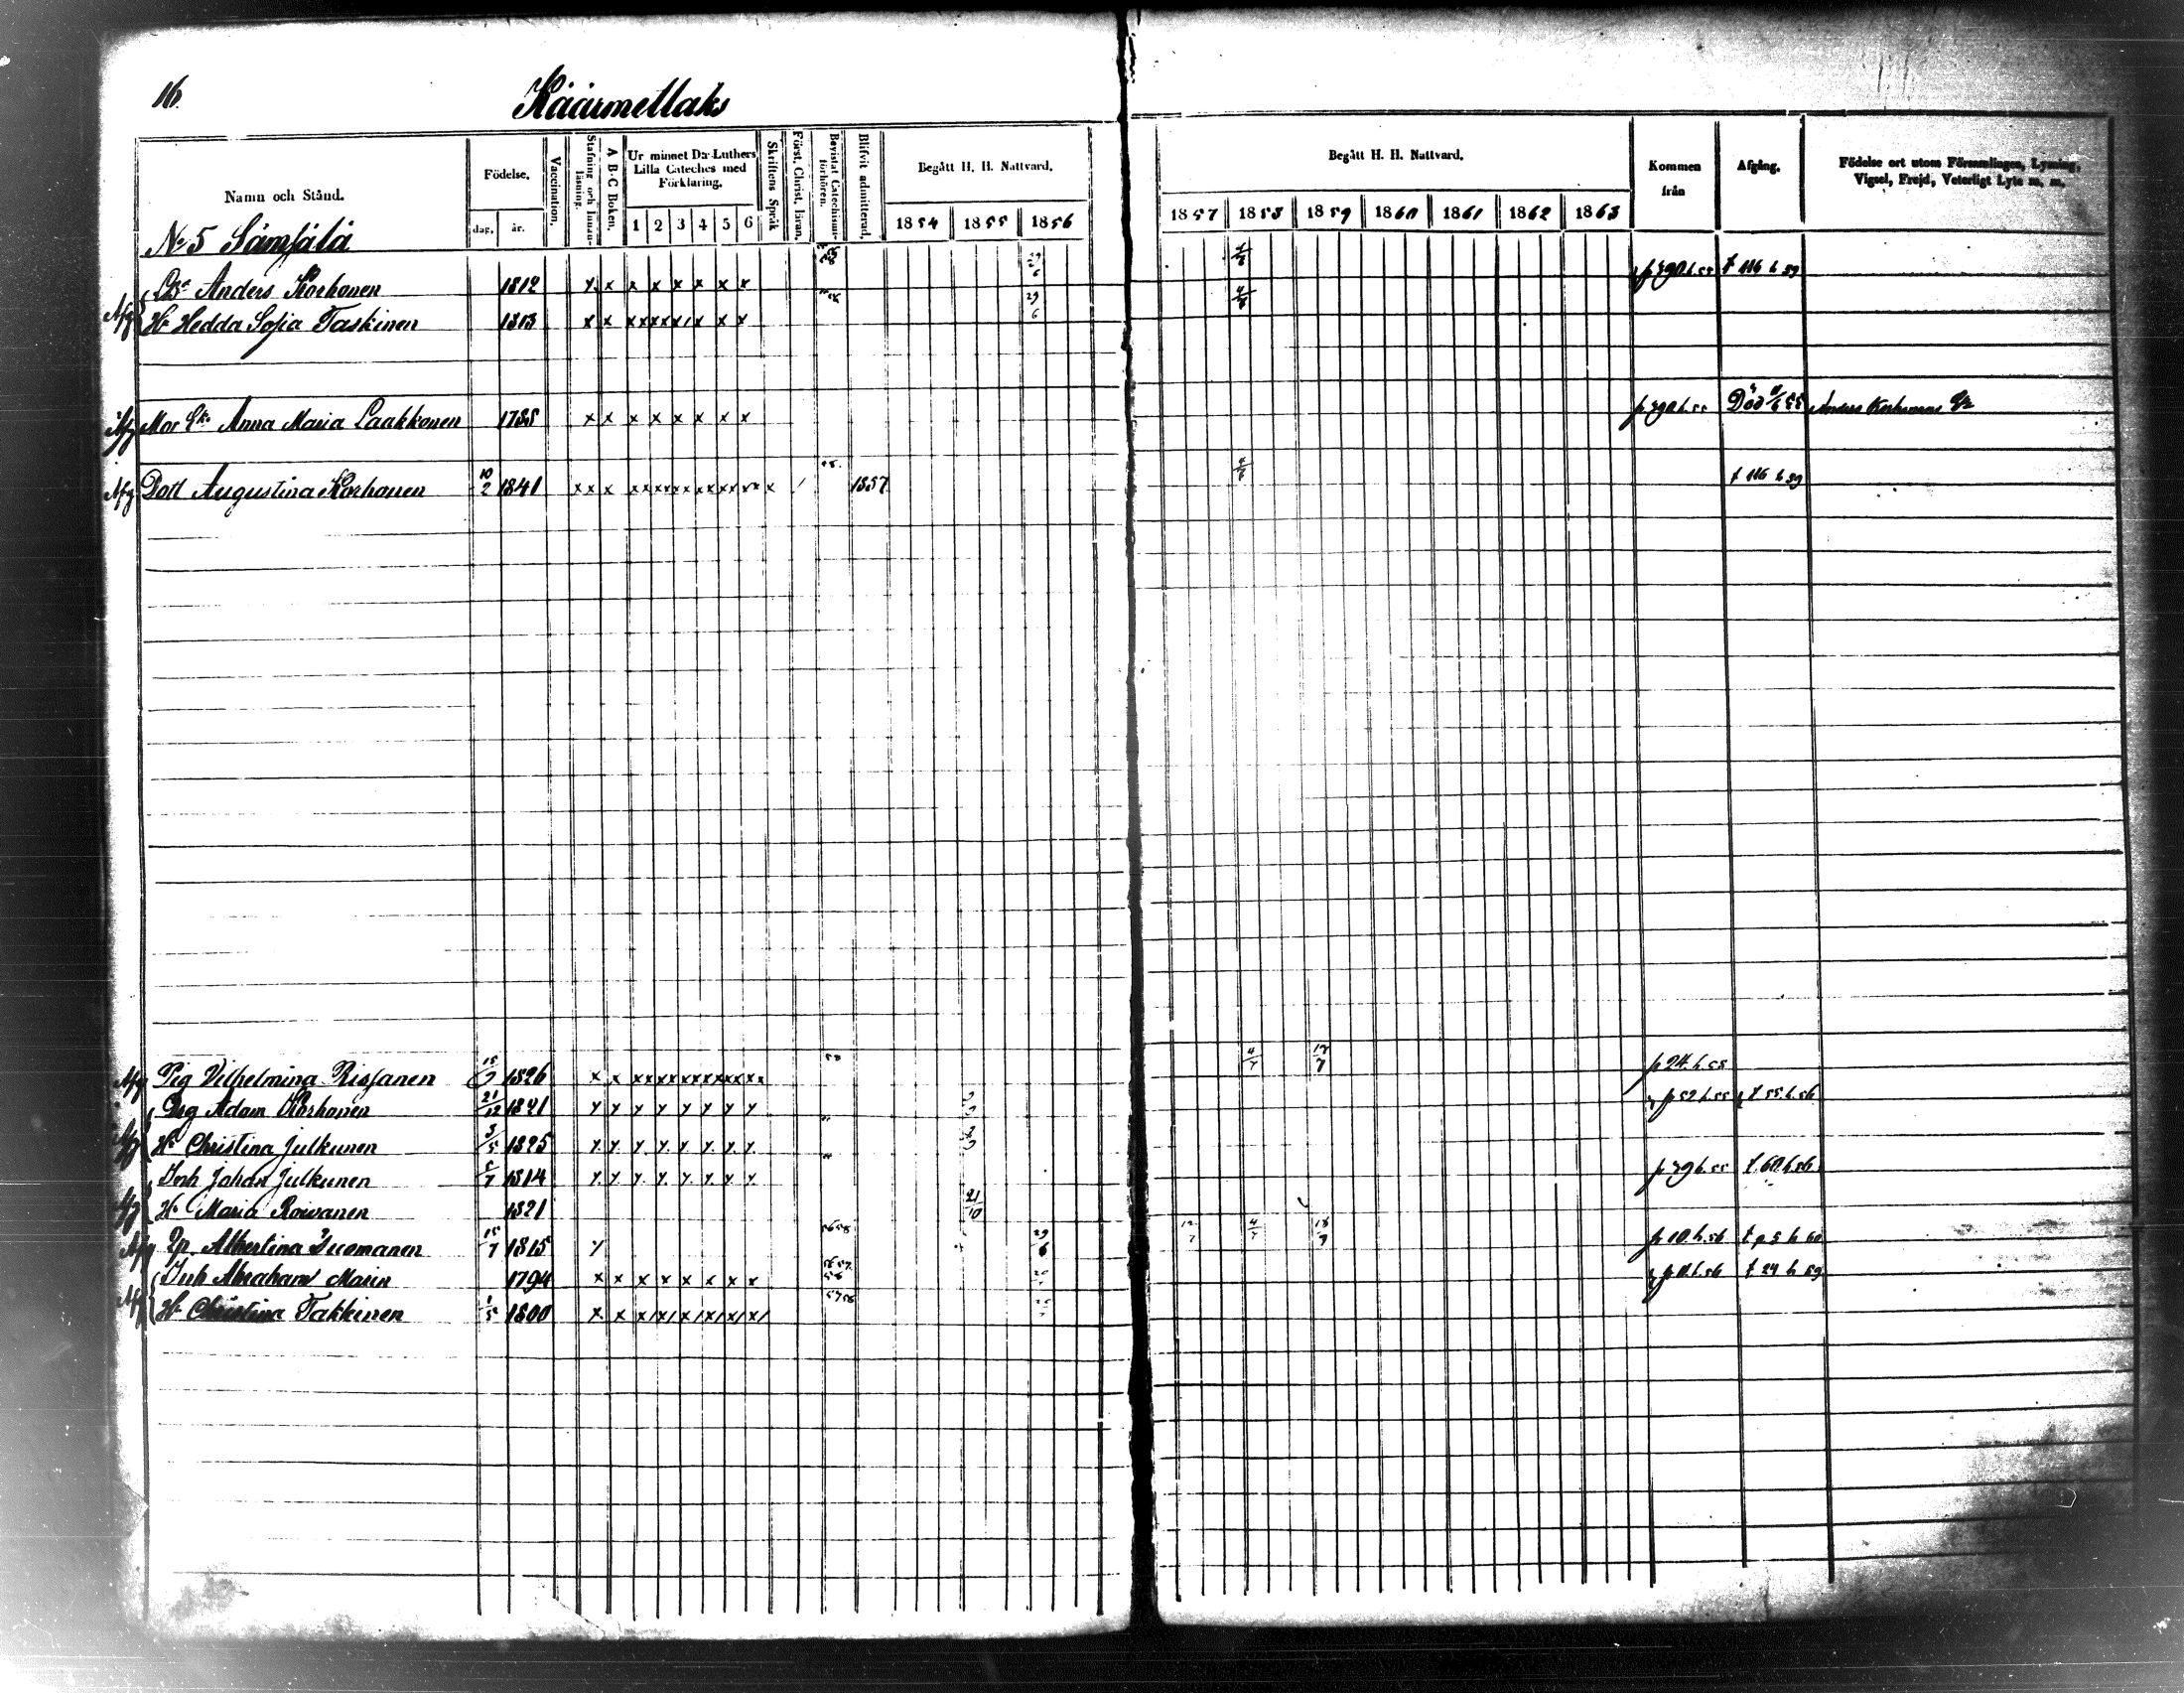 16.
Käärmetlaks
Namn och Stånd.
Födelse.
dag. år.
Vaccination.
Stafning och Innanläsning.
A B C Boken.
Ur minnet D:r Luthers Lilla Cateches med Förklaring.
1 2 3 4 5 6
Skriftens Språk
Först. Christ. läran.
Bevistat Catechismiförhören.
Blifvit admitterad.
Begått H. H. Nattvard.
1854 1855 1856
Begått H. H. Nattvard.
1857 1858 1859 1860 1861 1862 1863
Kommen från
Afgång.
Födelse ort utom Församlingen, Lysning, Vigsel, Frejd, Veterligt Lyte m. m.
No 5
Anders Korhonen 1812 x x x x x x x x 29/6 p 390 h. 55 f 116 h 59
Afg Hu Hedda Sofia Taskinen 1813 x x x x x x x x x x 29/6 4/6
Afg Mor Anna Maria Laakkonen 1785 x x x x x x x x p 390 h. 55 Död Anders Korhonens
Afg Dott Augustina Korhonen 10/2 1841 x x x x x x x x x x x x x x x x x 1857 4/6 f 116 h 59
Afg Pig Vilhelmina Rissanen 1826 x x x x x x x x x x x x x x 58 4/7 17/7 p 24. h. 58
Drg Adam Korhonen 21/12 1821 y y y y y y y y p 52 h. 55 f 55. h. 56
Afg Hu Christina Julkunen 3/5 1825 y y y y y y y y
Inh Johan Julkunen 5/7 1814 y y y y y y y y p 39 h. 55 f. 60. h. 56
Afg Hu Maria Roivanen 1821 21/10
Afg Albertina Tuomanen 15/7 1815 y 56 58 29/6 12/7 4/7 18/7 p 10. h. 56 f p 5 h 60
Inh Abraham Marin 1794 x x x x x x x x 56 57. 58 p 11. h. 56 f 24 h 59
Afg Hu Christina Takkinen 1/5 1800 x x x/ x/ x/ x/ x/ x/ 57 58